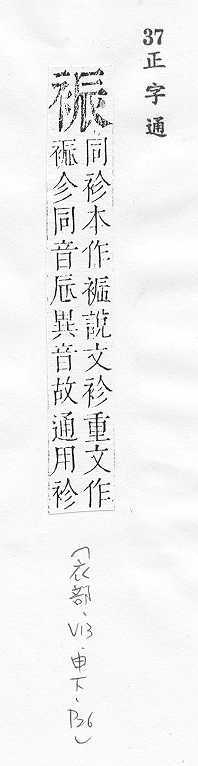 37正字通
裖
同袗本作說文袗重文作
裖㐱同音辰異音故通用袗
(衣部、V13、申下、P26)